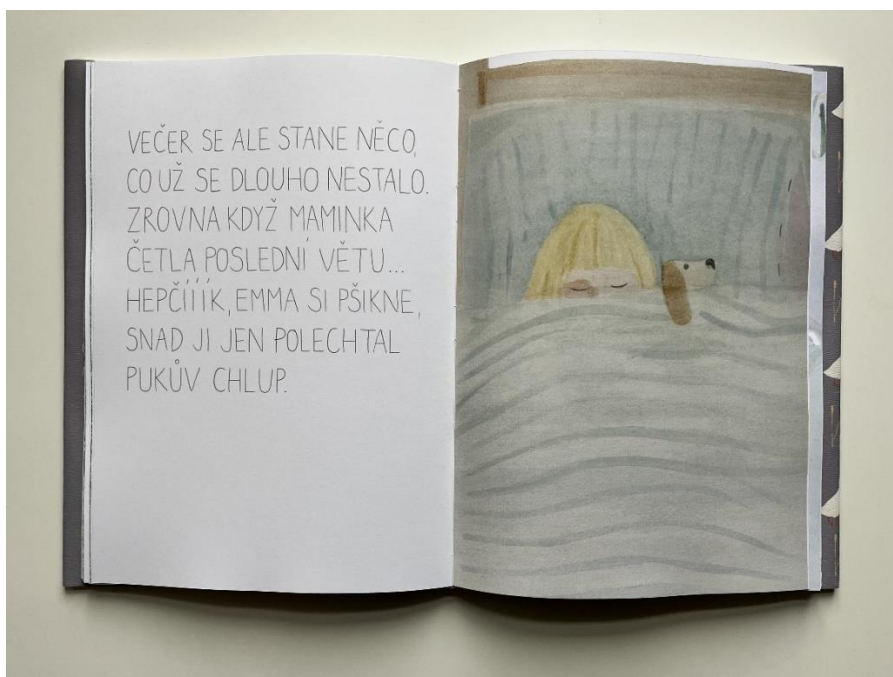 VEČER SE ALE STANE NĚCO,
CO UŽ SE DLOUHO NESTALO.
ZROVNA KDYŽ MAMINKA
ČETLA POSLEDNÍ VĚTU...
HEPČÍÍÍK, EMMA SI PŠIKNE,
SNAD JI JEN POLECHTAL
PUKŮV CHLUP.